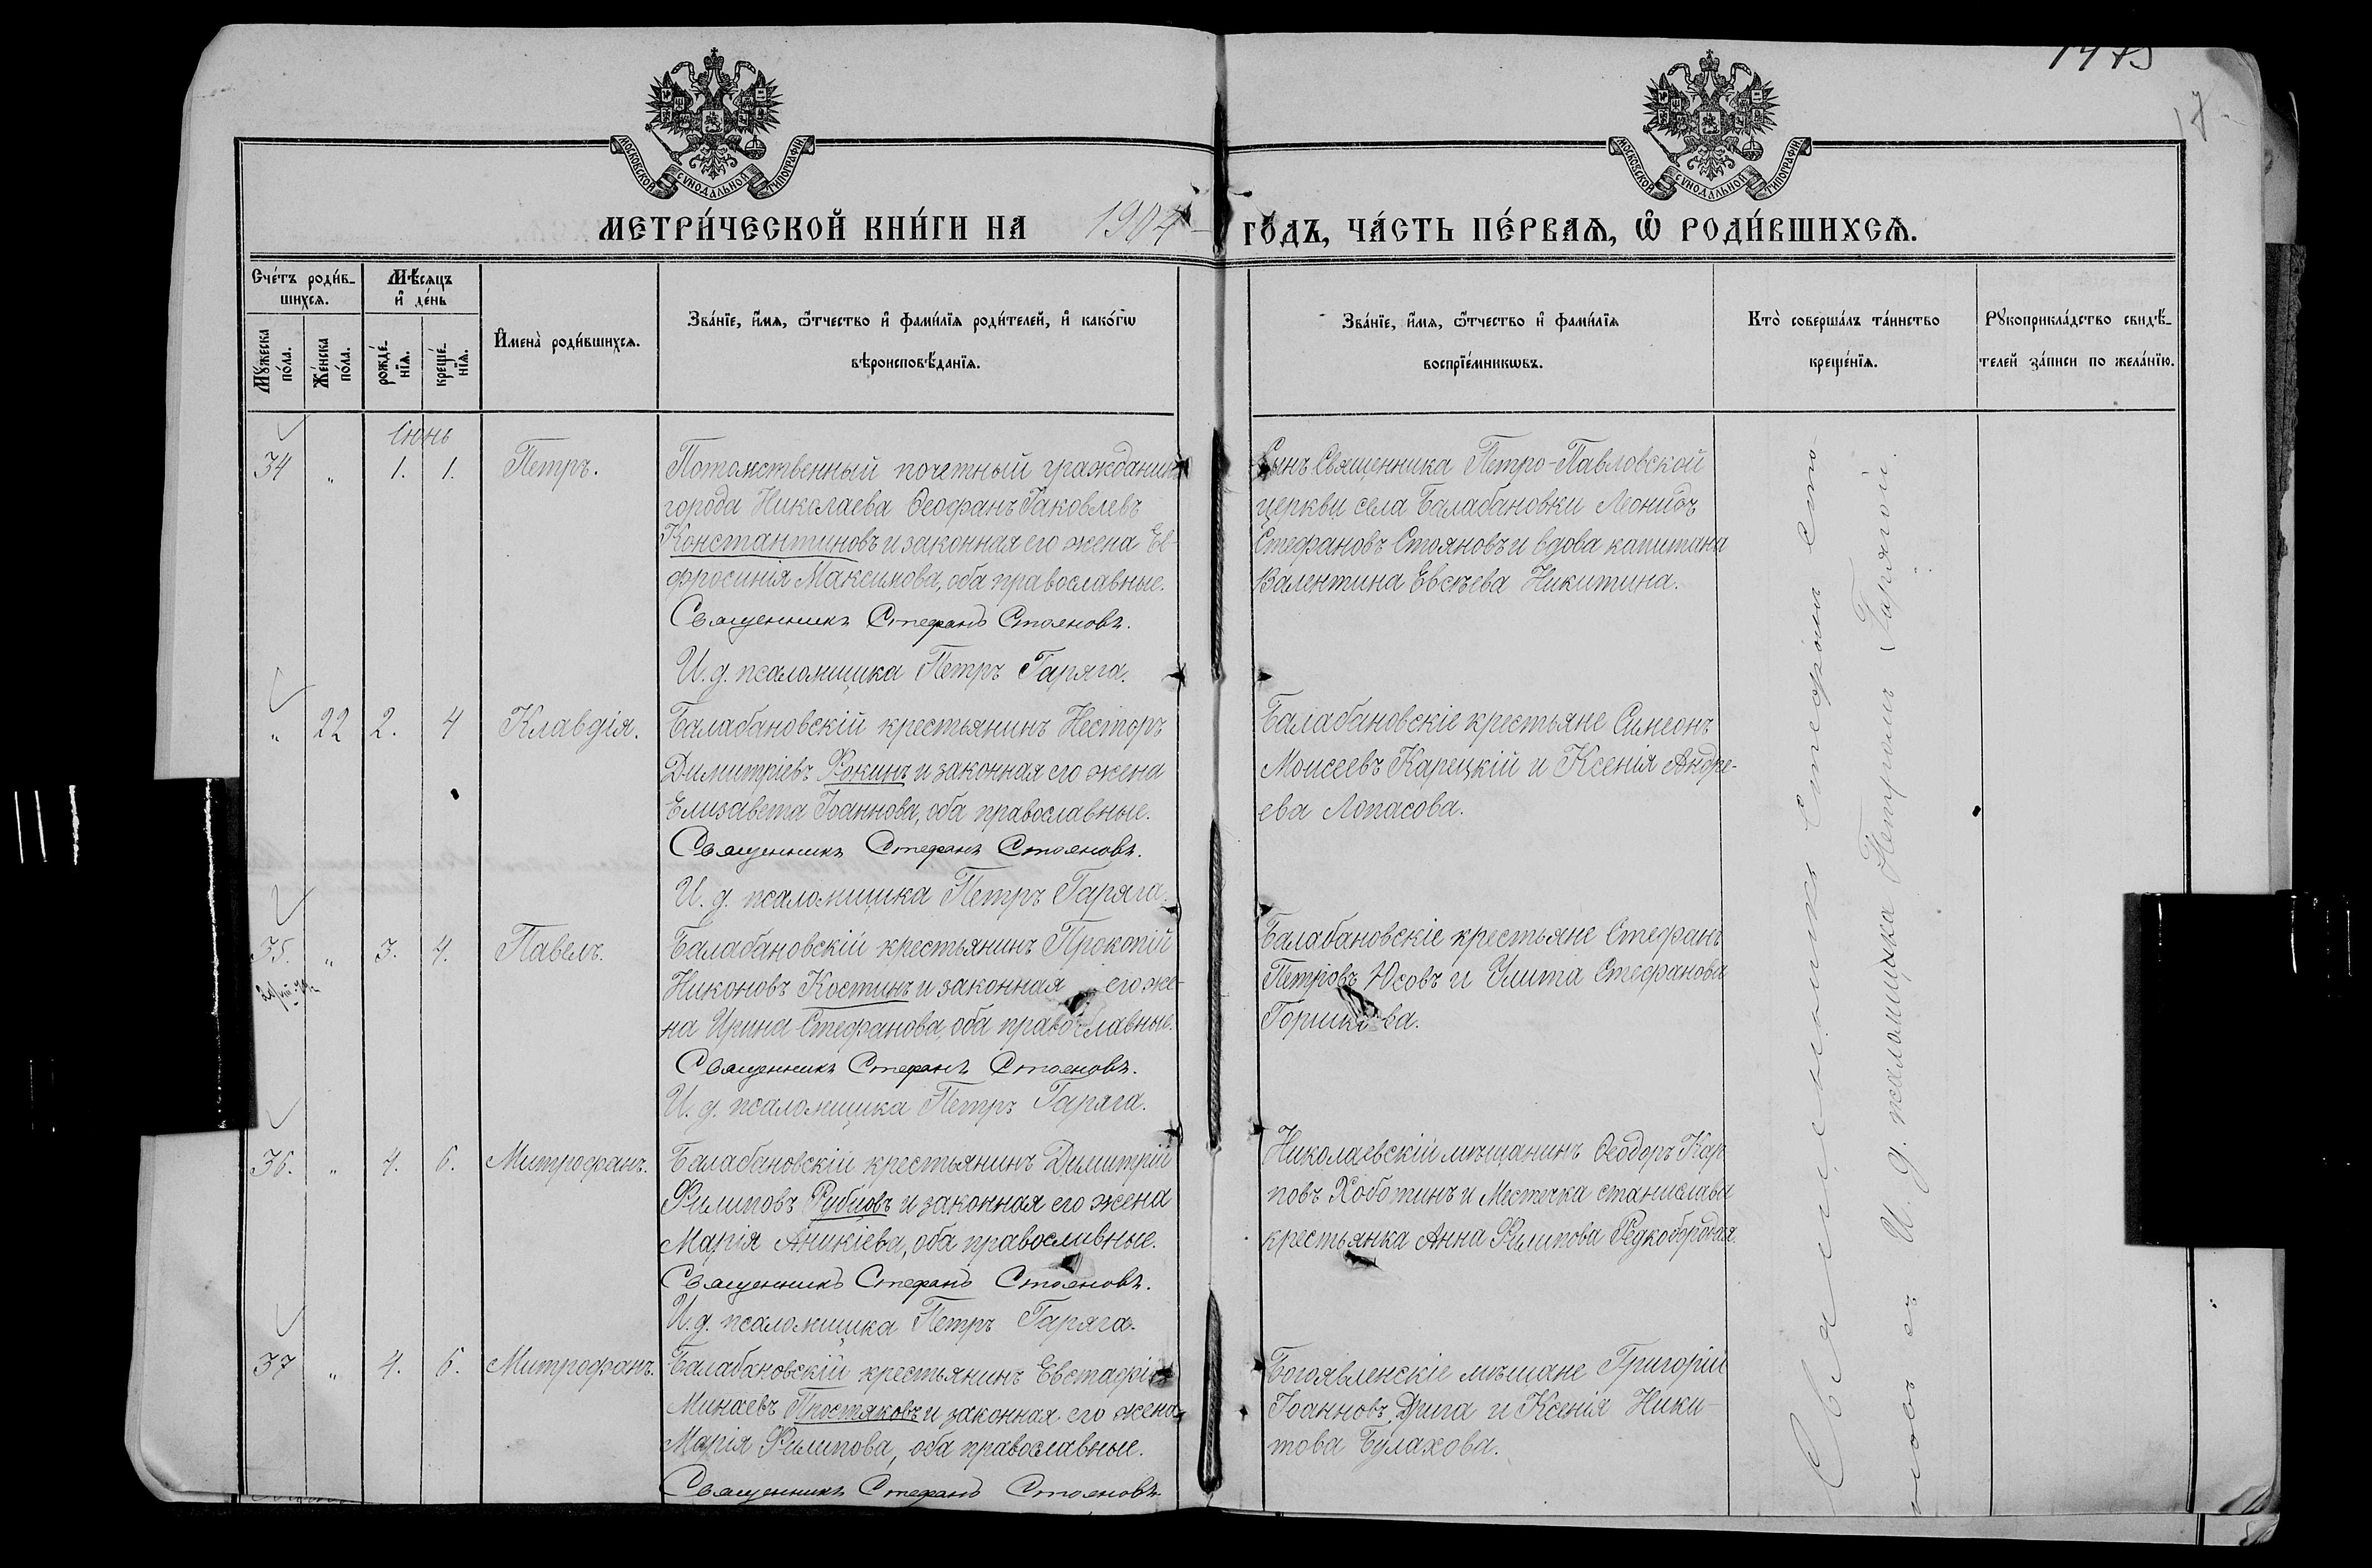 1475
17
МОСКОВСКОЙ СѴНОДАЛЬНОЙ ТИПОГРАФІИ
МОСКОВСКОЙ СѴНОДАЛЬНОЙ ТИПОГРАФІИ
МЕТРИ́ЧЕСКОЙ КНИ́ГИ НА 1904 ГО́ДЪ, ЧА́СТЬ ПЕ́РВАѦ, Ѡ РОДИ́ВШИХСѦ.
Сче́тъ роди́в-
шихсѧ.
Мꙋ́жеска по́ла.
Же́нска по́ла.
Мѣ́сѧцъ
и де́нь
рожде́-
нїѧ.
креще́-
нїѧ.
Имена̀ роди́вшихсѧ.
Зва́нїе, и́мѧ, ѻ́тчество и фами́лїѧ роди́телей, и како́гѡ
вѣроисповѣ́данїѧ.
Зва́нїе, и́мѧ, ѻ́тчество и фами́лїѧ
воспрїе́мникѡвъ.
Кто̀ соверша́лъ та́инство
креще́нїѧ.
Рꙋкоприкла́дство свидѣ́-
телей за́писи по жела́нїю.
Іюнь
34 " 1. 1. Петръ.
Потомственный почетный гражданинъ
города Николаева Ѳеофанъ Іаковлевъ
Константиновъ и законная его жена Ев-
фросинія Максимова, оба православные.
Священникъ Стефанъ Стояновъ.
И. д. псаломщика Петръ Гаряга.
Сынъ Священника Петро-Павловской
церкви села Балабановки Леонидъ
Стефановъ Стояновъ и вдова капитана
Валентина Евсѣева Никитина.
" 22 2. 4 Клавдія.
Балабановскій крестьянинъ Несторъ
Димитріевъ Фокинъ и законная его жена
Елизавета Іоаннова, оба православные.
Священникъ Стефанъ Стояновъ.
И. д. псаломщика Петръ Гаряга.
Балабановскіе крестьяне Симеонъ
Моисеевъ Карецкій и Ксенія Андре-
ева Лопасова.
35. " 3. 4. Павелъ.
Балабановскій крестьянинъ Прокопій
Никоновъ Костинъ и законная его же-
на Ирина Стефанова, оба православные.
Священникъ Стефанъ Стояновъ.
И. д. псаломщика Петръ Гаряга.
Балабановскіе крестьяне Стефанъ
Петровъ Юсовъ и Улита Стефанова
Горшкова.
36. " 4. 6. Митрофанъ.
Балабановскій крестьянинъ Димитрій
Филиповъ Рубцовъ и законная его жена
Марія Аникіева, оба православные.
Священникъ Стефанъ Стояновъ.
И. д. псаломщика Петръ Гаряга.
Николаевскій мѣщанинъ Ѳеодоръ Кар
повъ Хоботинъ и Местечка станислава
крестьянка Анна Филипова Редкобородая
37 " 4. 6. Митрофанъ.
Балабановскій крестьянинъ Евстафій
Минаевъ Простяковъ и законная его жена
Марія Филипова, оба православные.
Священникъ Стефанъ Стояновъ
Богоявленскіе мѣщане Григорій
Іоанновъ Дрига и Ксенія Ники-
това Булахова.
Священникъ Стефанъ Сто-
яновъ съ И. д. псаломщика Петромъ Гарягой.